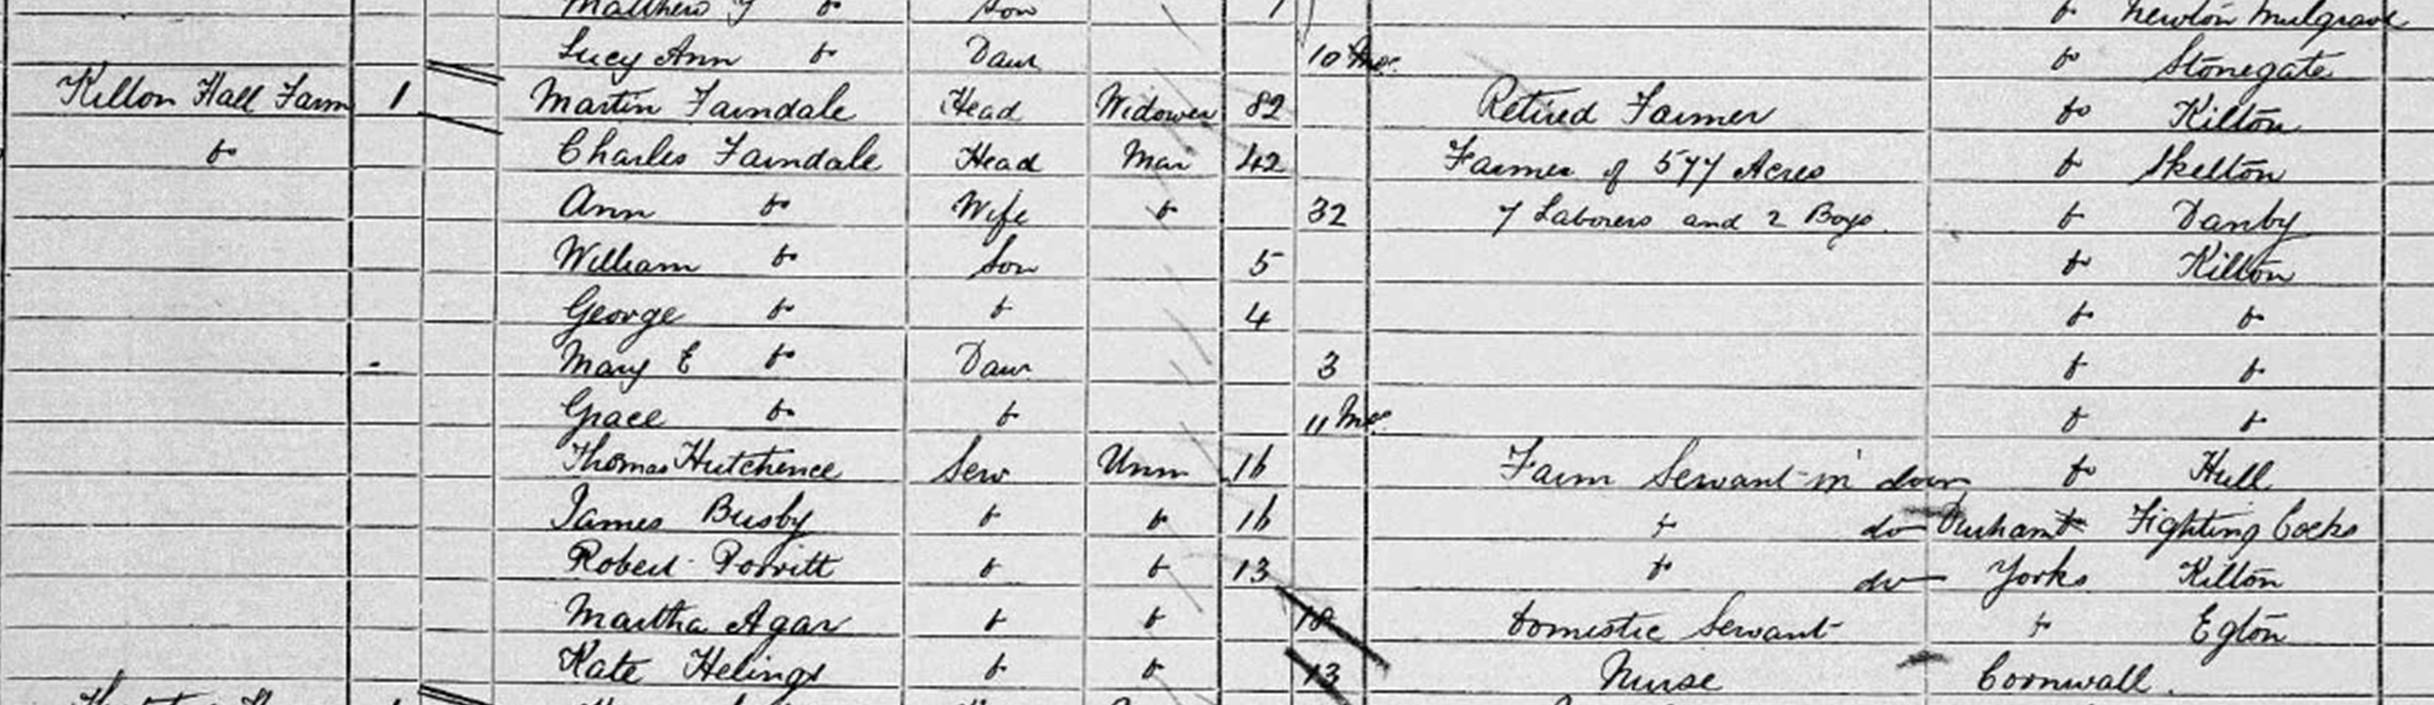 Matthew J do Son 7 do Newton Mulgrave
Lucy Ann do Daur 10 Mos. do Stonegate
Kilton Hall Farm 1 Martin Farndale Head Widower 82 Retired Farmer do Kilton
do Charles Farndale Head Mar 42 Farmer of 577 Acres do Skelton
Ann do Wife do 32 7 Laborers and 2 Boys. do Danby
William do Son 5 do Kilton
George do do 4 do do
Mary E do Daur 3 do do
Grace do do 11 Mos. do do
Thomas Hutchence Serv Unm 16 Farm Servant in door do Hull
James Busby do do 16 do do Durham Fighting Cocks
Robert Porritt do do 13 do do Yorks Kilton
Martha Agar do do 18 Domestic Servant do Egton
Kate Helings do do 13 Nurse Cornwall.